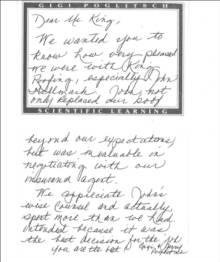 GIGI POGLITSCH
Dear Mr King,
We wanted you to
know how very pleased
we were with King
Roofing, especially John
Hallmark! John not
only replaced our body
SCIENTIFIC LEARNING
beyond our expectations,
but was invaluable in
negotiating with our
insurance agent.
We appreciate John's
wise counsel and actually
spent more than we had
intended because it was
the best decision for the job
You are the best